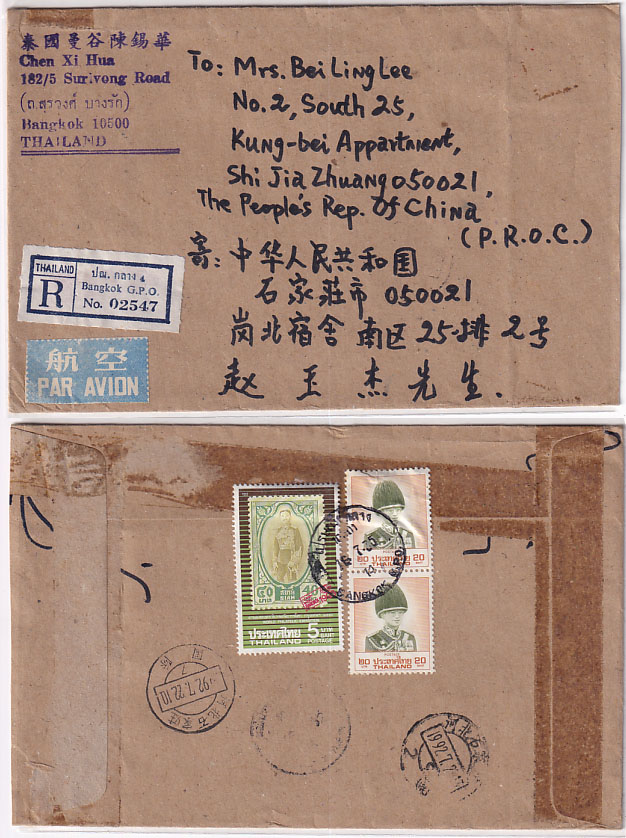 泰國曼谷陳錫華
Chen Xi Hua
182/5 Surivong Road
(ถ.สุรวงศ์ บางรัก)
Bangkok 10500
THAILAND
To: Mrs. Bei Ling Lee
No.2, South 25,
Kung-bei Appartment,
Shi Jia Zhuang 050021,
The People's Rep. Of China
(P.R.O.C.)
寄: 中华人民共和国
石家莊市 050021
岗北宿舍 南区 25-排 2号
赵玉杰先生.
THAILAND
R
ปณ. กลาง 4
Bangkok G.P.O.
No. 02547
航空
PAR AVION
๔๐ 40
บาท
SIAM
ประเทศไทย 5 บาท BAHT
THAILAND POSTAGE
POSTAGE
๒๐ ประเทศไทย 20
บาท THAILAND BAHT
POSTAGE
๒๐ ประเทศไทย 20
บาท THAILAND BAHT
BANGKOK G.P.O.
92.7.22.10
河北石家庄